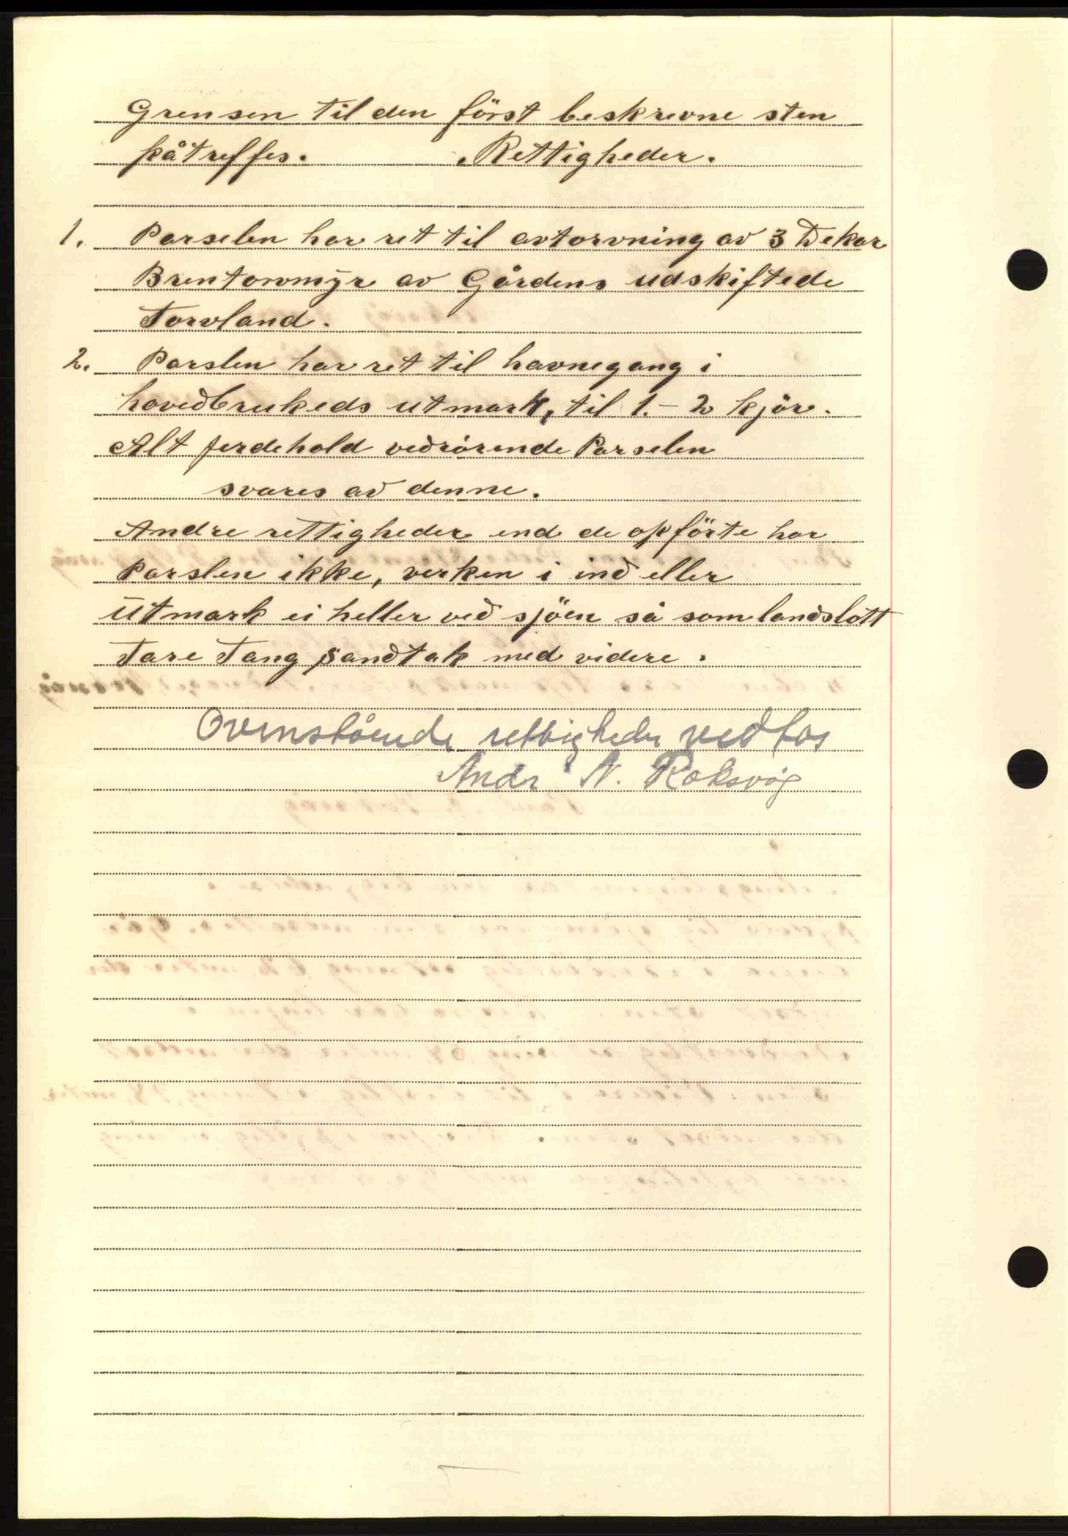 Grensen til den först beskrevne sten
påtreffes. Rettigheder.
1. Parselen har ret til avtorvning av 3 Dekar
Brentorvmyr av Gårdens udskiftede
Torvland.
2. Parslen har ret til havnegang i
hovedbrukeds utmark, til 1.-2 kjör.
Alt jerdehold vedrörende Parselen
svares av denne.
Andre rettigheder end de opförte har
Parslen ikke, verken i ind eller
utmark ei heller ved sjöen så som landslott
Tare Tang sandtak med videre.
Ovenstående rettigheder vedtas
Andr N. Roksvåg